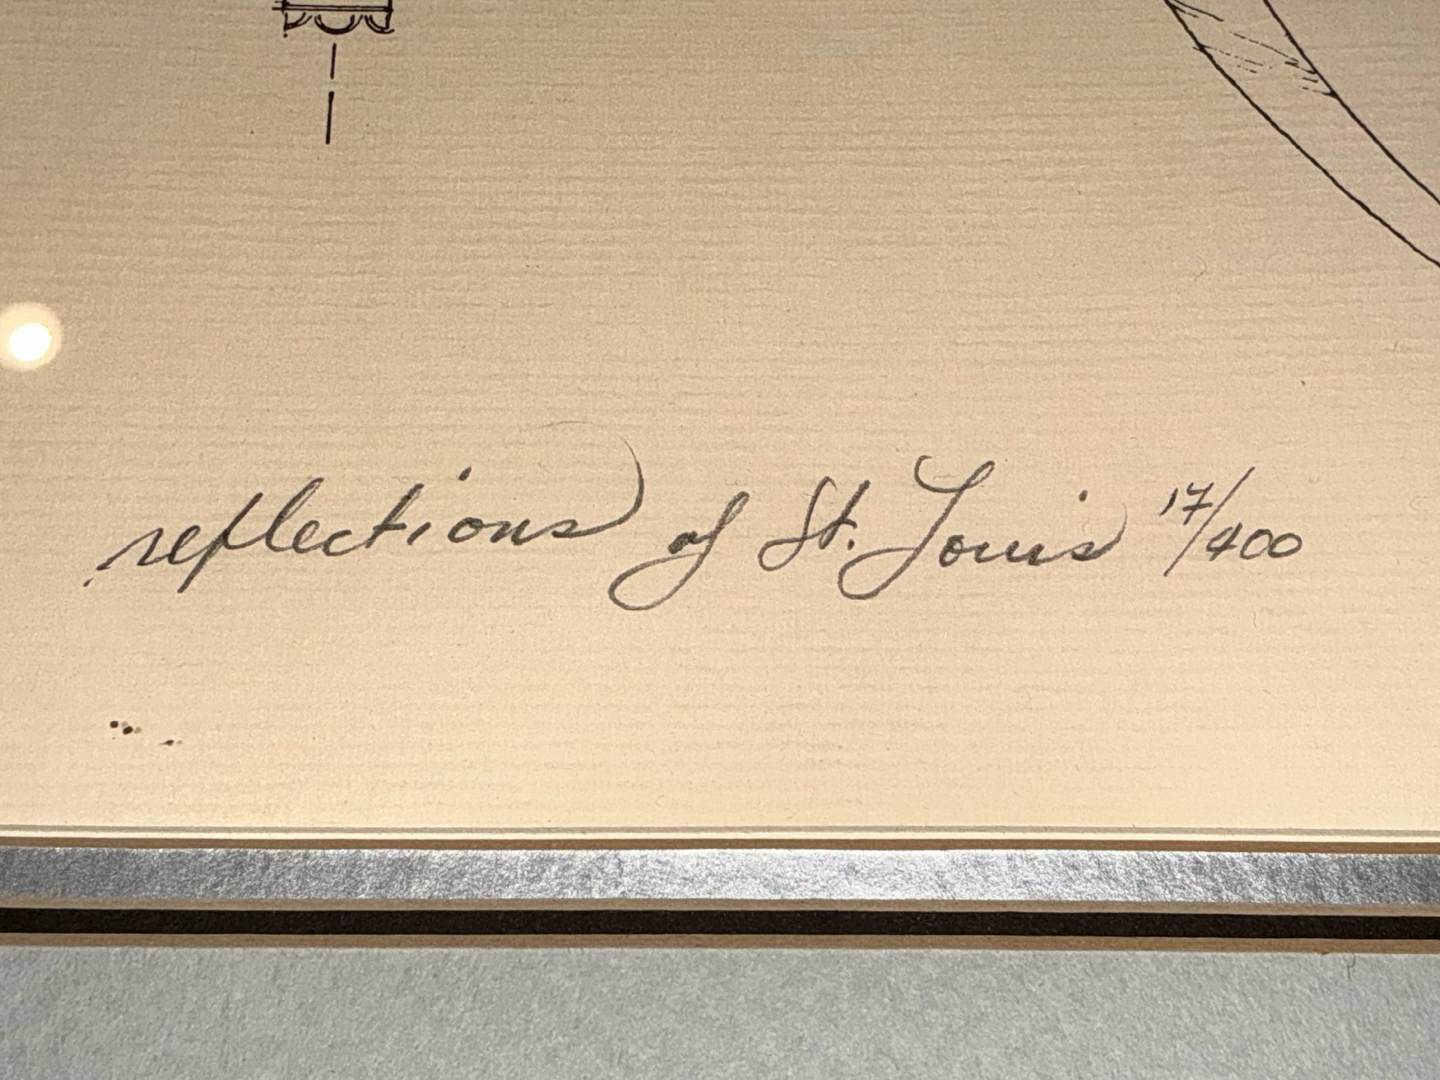 reflections of St. Louis 17/400